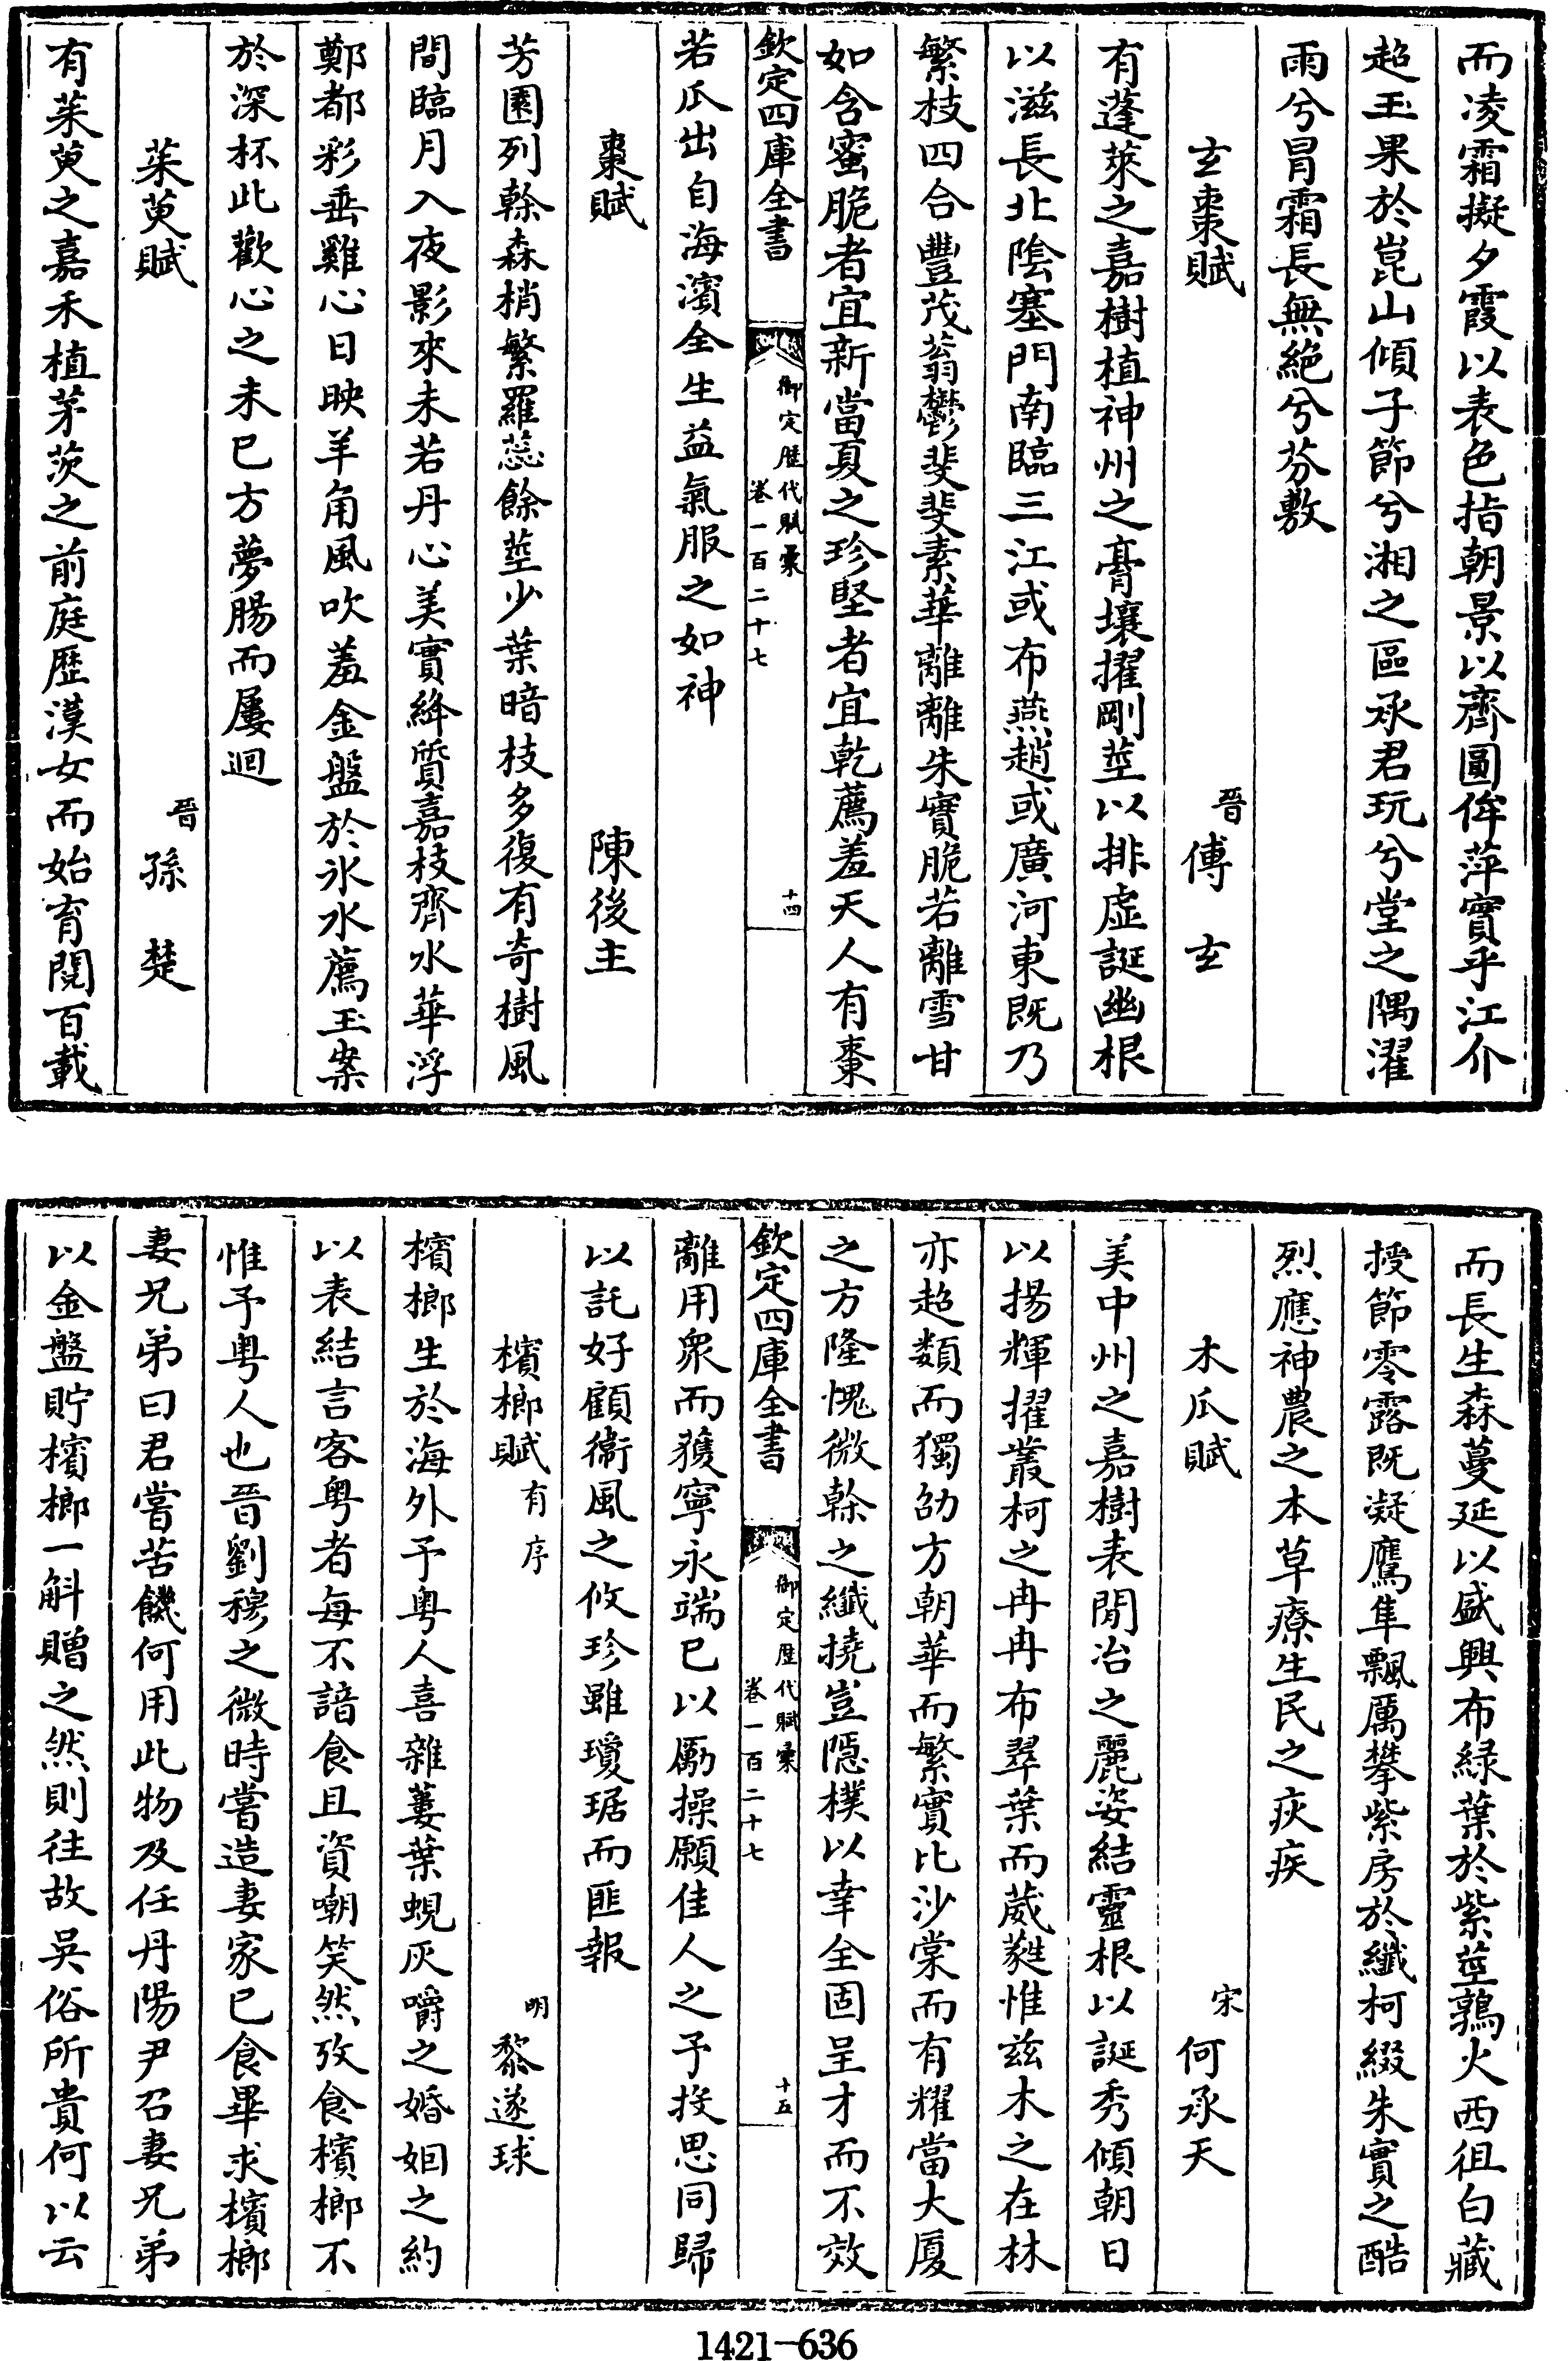 而凌霜擬夕霞以表色指朝景以齊圓侔萍實乎江介
超玉果於崑山傾子節兮湘之區承君玩兮堂之隅濯
雨兮冒霜長無絕兮芬敷
玄棗賦 晉 傅玄
有蓬萊之嘉樹植神州之膏壤擢剛莖以排虛誕幽根
以滋長北陰塞門南臨三江或布燕趙或廣河東既乃
繁枝四合豐茂蓊鬱斐斐素華離離朱實脆若離雪甘
如含蜜脆者宜新當夏之珍堅者宜乾薦羞天人有棗
欽定四庫全書 御定歷代賦彙 卷一百二十七 十四
若瓜出自海濱全生益氣服之如神
棗賦 陳後主
芳園列榦森梢繁羅蕊餘莖少葉暗枝多復有奇樹風
間臨月入夜影來未若丹心美實絳質嘉枝齊水華浮
鄭都彩垂雞心日映羊角風吹羞金盤於氷水薦玉案
於深杯此歡心之未已方夢腸而屢迴
茱萸賦 晉 孫楚
有茱萸之嘉禾植茅茨之前庭歷漢女而始育閱百載
而長生森蔓延以盛興布綠葉於紫莖鶉火西徂白藏
授節零露既凝鷹隼飄厲攀紫房於纖柯綴朱實之酷
烈應神農之本草療生民之疢疾
木瓜賦 宋 何承天
美中州之嘉樹表閒冶之麗姿結靈根以誕秀傾朝日
以揚輝擢叢柯之冉冉布翠葉而葳蕤惟茲木之在林
亦超類而獨劭方朝華而繁實比沙棠而有耀當大廈
之方隆愧微榦之纖撓豈隱樸以幸全固呈才而不效
欽定四庫全書 御定歷代賦彙 卷一百二十七 十五
離用衆而獲寧永端已以勵操願佳人之予投思同歸
以託好顧衞風之攸珍雖瓊琚而匪報
檳榔賦有序 明 黎遂球
檳榔生於海外予粵人喜雜蔞葉蜆灰嚼之婚姻之約
以表結言客粵者每不諳食且資嘲笑然攷食檳榔不
惟予粵人也晉劉穆之微時嘗造妻家已食畢求檳榔
妻兄弟曰君嘗苦饑何用此物及任丹陽尹召妻兄弟
以金盤貯檳榔一斛贈之然則往故吳俗所貴何以云
1421-636